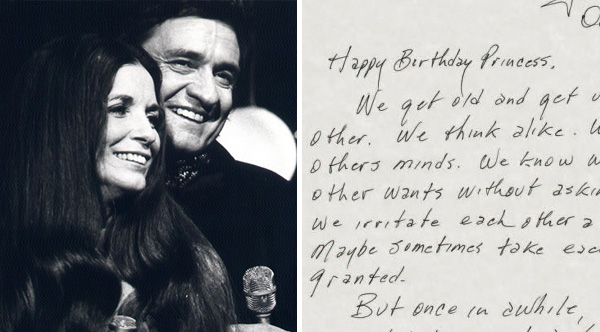 Happy Birthday Princess,
We get old and get
other. We think alike.
others minds. We know
other wants without
we irritate each other a
Maybe sometimes take
granted.
But once in awhile,